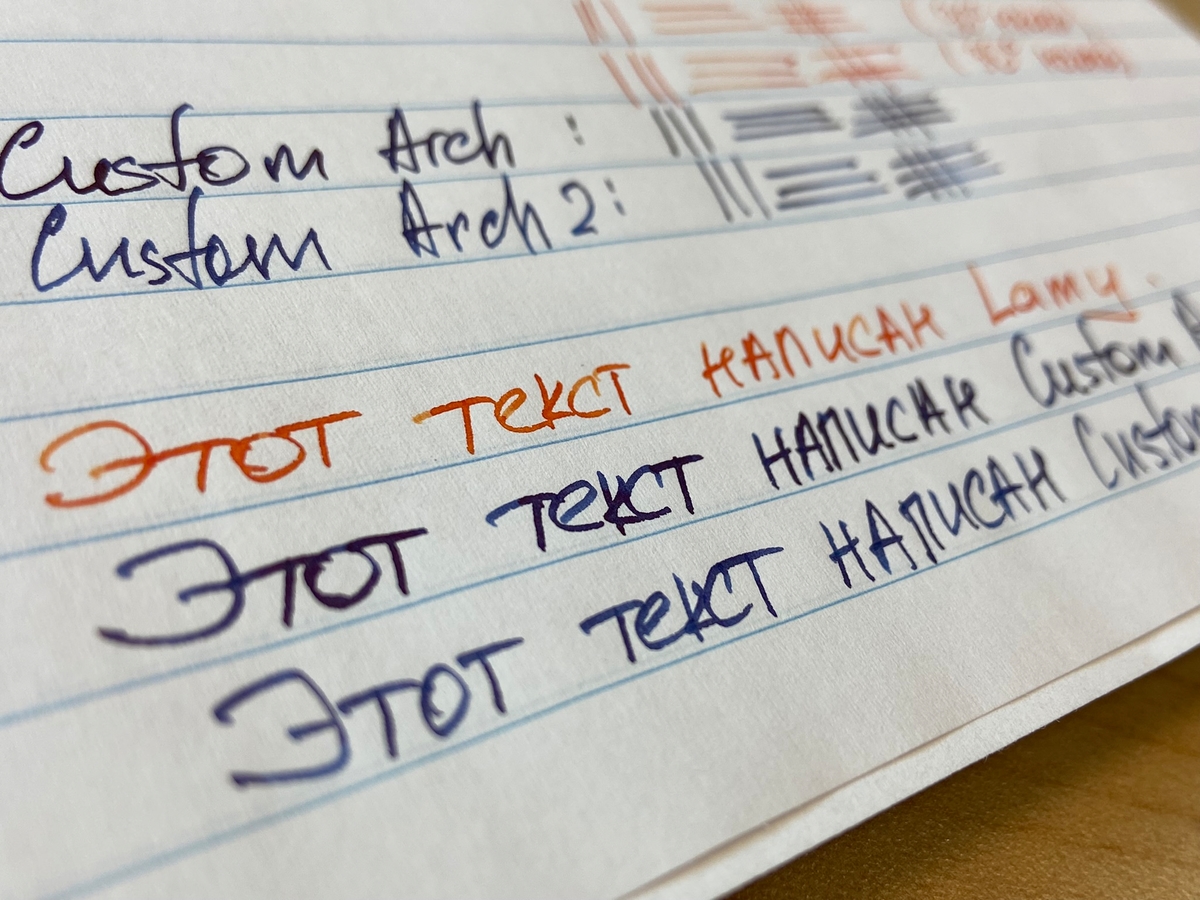 Custom Arch :
Custom Arch 2:
Этот текст написан Lamy.
Этот текст написан Custom
Этот текст написан Custom